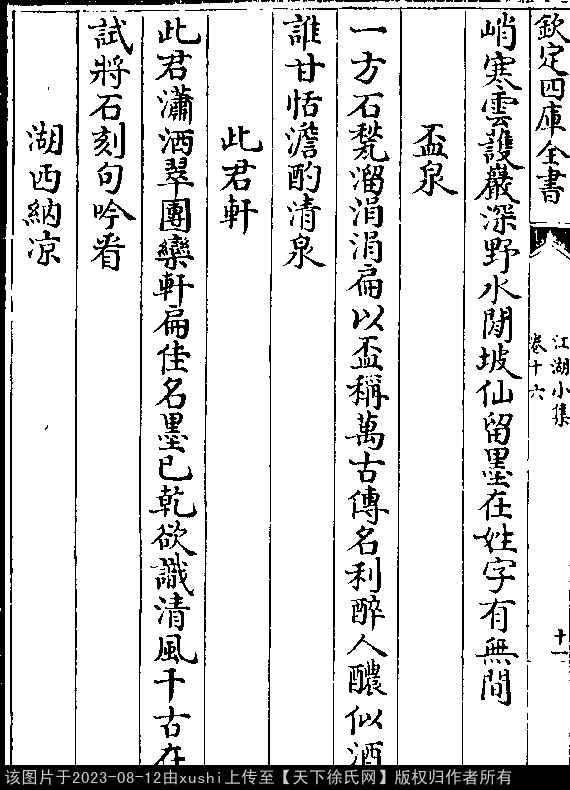 欽定四庫全書
江湖小集
卷十六
十一
峭寒雲䕶巖深野水閒坡仙留墨在姓字有無間
盃泉
一方石甃溜涓涓扁以盃稱萬古傳名利醉人醲似酒
誰甘恬澹酌清泉
此君軒
此君瀟洒翠團欒軒扁佳名墨已乾欲識清風千古在
試將石刻句吟看
湖西納凉
该图片于2023-08-12由xushi上传至【天下徐氏网】版权归作者所有